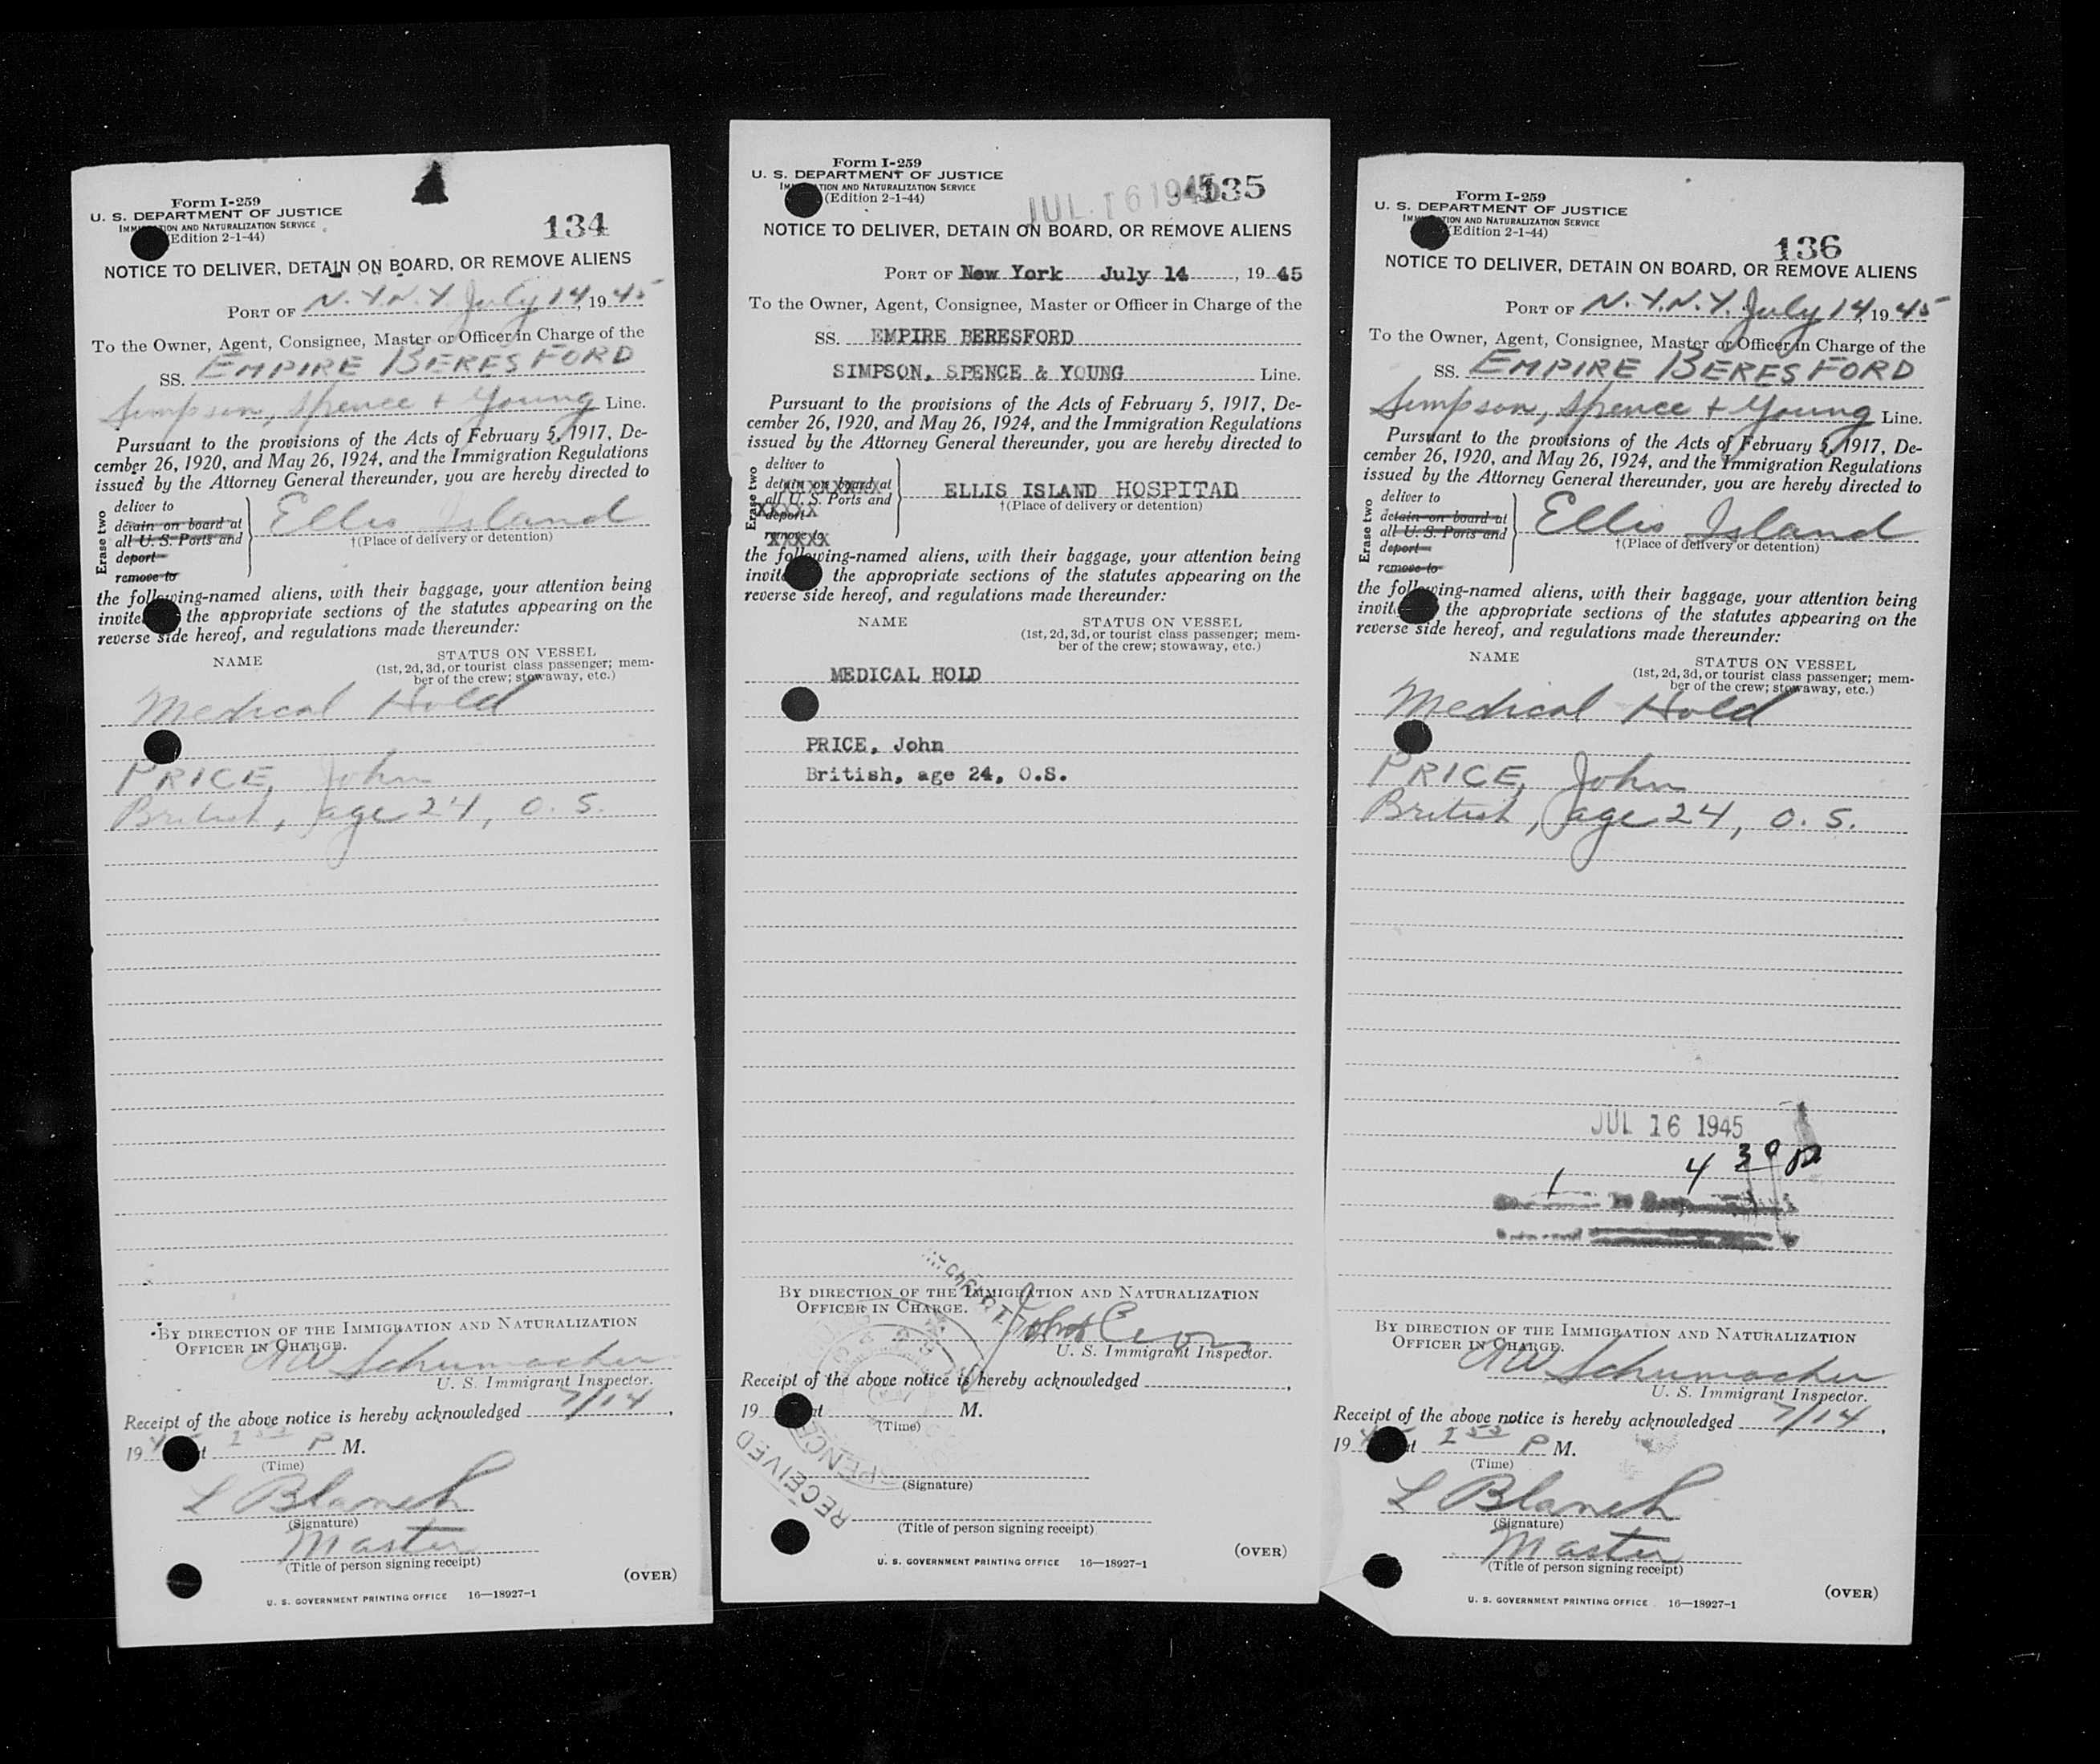 Form I-259
U. S. DEPARTMENT OF JUSTICE
IMM TION AND NATURALIZATION SERVICE
(Edition 2-1-44)
134
NOTICE TO DELIVER, DETAIN ON BOARD, OR REMOVE ALIENS
PORT OF N.Y.N.Y. July 14, 1945
To the Owner, Agent, Consignee, Master or Officer in Charge of the
SS. EMPIRE BERESFORD
Simpson, Spence + Young Line.
Pursuant to the provisions of the Acts of February 5, 1917, De-
cember 26, 1920, and May 26, 1924, and the Immigration Regulations
issued by the Attorney General thereunder, you are hereby directed to
Erase two
deliver to
detain on board at
all U. S. Ports and
deport
remove to
Ellis Island
†(Place of delivery or detention)
the following-named aliens, with their baggage, your attention being
invite the appropriate sections of the statutes appearing on the
reverse side hereof, and regulations made thereunder:
NAME
STATUS ON VESSEL
(1st, 2d, 3d, or tourist class passenger; mem-
ber of the crew; stowaway, etc.)
Medical Hold
PRICE, John
British, age 24, O.S.
BY DIRECTION OF THE IMMIGRATION AND NATURALIZATION
OFFICER IN CHARGE.
AW Schumacher
U. S. Immigrant Inspector.
Receipt of the above notice is hereby acknowledged 7/14,
19 4 t P M.
(Time)
L Blanch
(Signature)
Master
(Title of person signing receipt)
(OVER)
U. S. GOVERNMENT PRINTING OFFICE 16—18927-1
Form I-259
U. S. DEPARTMENT OF JUSTICE
IM TION AND NATURALIZATION SERVICE
(Edition 2-1-44)
JUL 16 1945
135
NOTICE TO DELIVER, DETAIN ON BOARD, OR REMOVE ALIENS
PORT OF New York July 14, 1945
To the Owner, Agent, Consignee, Master or Officer in Charge of the
SS. EMPIRE BERESFORD
SIMPSON, SPENCE & YOUNG Line.
Pursuant to the provisions of the Acts of February 5, 1917, De-
cember 26, 1920, and May 26, 1924, and the Immigration Regulations
issued by the Attorney General thereunder, you are hereby directed to
Erase two
deliver to
detain on board at
all U. S. Ports and
deport
remove to
ELLIS ISLAND HOSPITAL
†(Place of delivery or detention)
the following-named aliens, with their baggage, your attention being
invite the appropriate sections of the statutes appearing on the
reverse side hereof, and regulations made thereunder:
NAME
STATUS ON VESSEL
(1st, 2d, 3d, or tourist class passenger; mem-
ber of the crew; stowaway, etc.)
MEDICAL HOLD
PRICE, John
British, age 24, O.S.
BY DIRECTION OF THE IMMIGRATION AND NATURALIZATION
OFFICER IN CHARGE.
U. S. Immigrant Inspector.
Receipt of the above notice is hereby acknowledged ,
19 at M.
(Time)
RECEIVED
SPENCE
(Signature)
(Title of person signing receipt)
(OVER)
U. S. GOVERNMENT PRINTING OFFICE 16—18927-1
Form I-259
U. S. DEPARTMENT OF JUSTICE
IMM TION AND NATURALIZATION SERVICE
(Edition 2-1-44)
136
NOTICE TO DELIVER, DETAIN ON BOARD, OR REMOVE ALIENS
PORT OF N.Y.N.Y. July 14, 1945
To the Owner, Agent, Consignee, Master or Officer in Charge of the
SS. EMPIRE BERESFORD
Simpson, Spence + Young Line.
Pursuant to the provisions of the Acts of February 5, 1917, De-
cember 26, 1920, and May 26, 1924, and the Immigration Regulations
issued by the Attorney General thereunder, you are hereby directed to
Erase two
deliver to
detain on board at
all U. S. Ports and
deport
remove to
Ellis Island
†(Place of delivery or detention)
the following-named aliens, with their baggage, your attention being
invite the appropriate sections of the statutes appearing on the
reverse side hereof, and regulations made thereunder:
NAME
STATUS ON VESSEL
(1st, 2d, 3d, or tourist class passenger; mem-
ber of the crew; stowaway, etc.)
Medical Hold
PRICE, John
British, age 24, O.S.
JUL 16 1945
1 4 30 p
BY DIRECTION OF THE IMMIGRATION AND NATURALIZATION
OFFICER IN CHARGE.
AW Schumacher
U. S. Immigrant Inspector.
Receipt of the above notice is hereby acknowledged 7/14,
19 4 t P M.
(Time)
L Blanch
(Signature)
Master
(Title of person signing receipt)
(OVER)
U. S. GOVERNMENT PRINTING OFFICE 16—18927-1